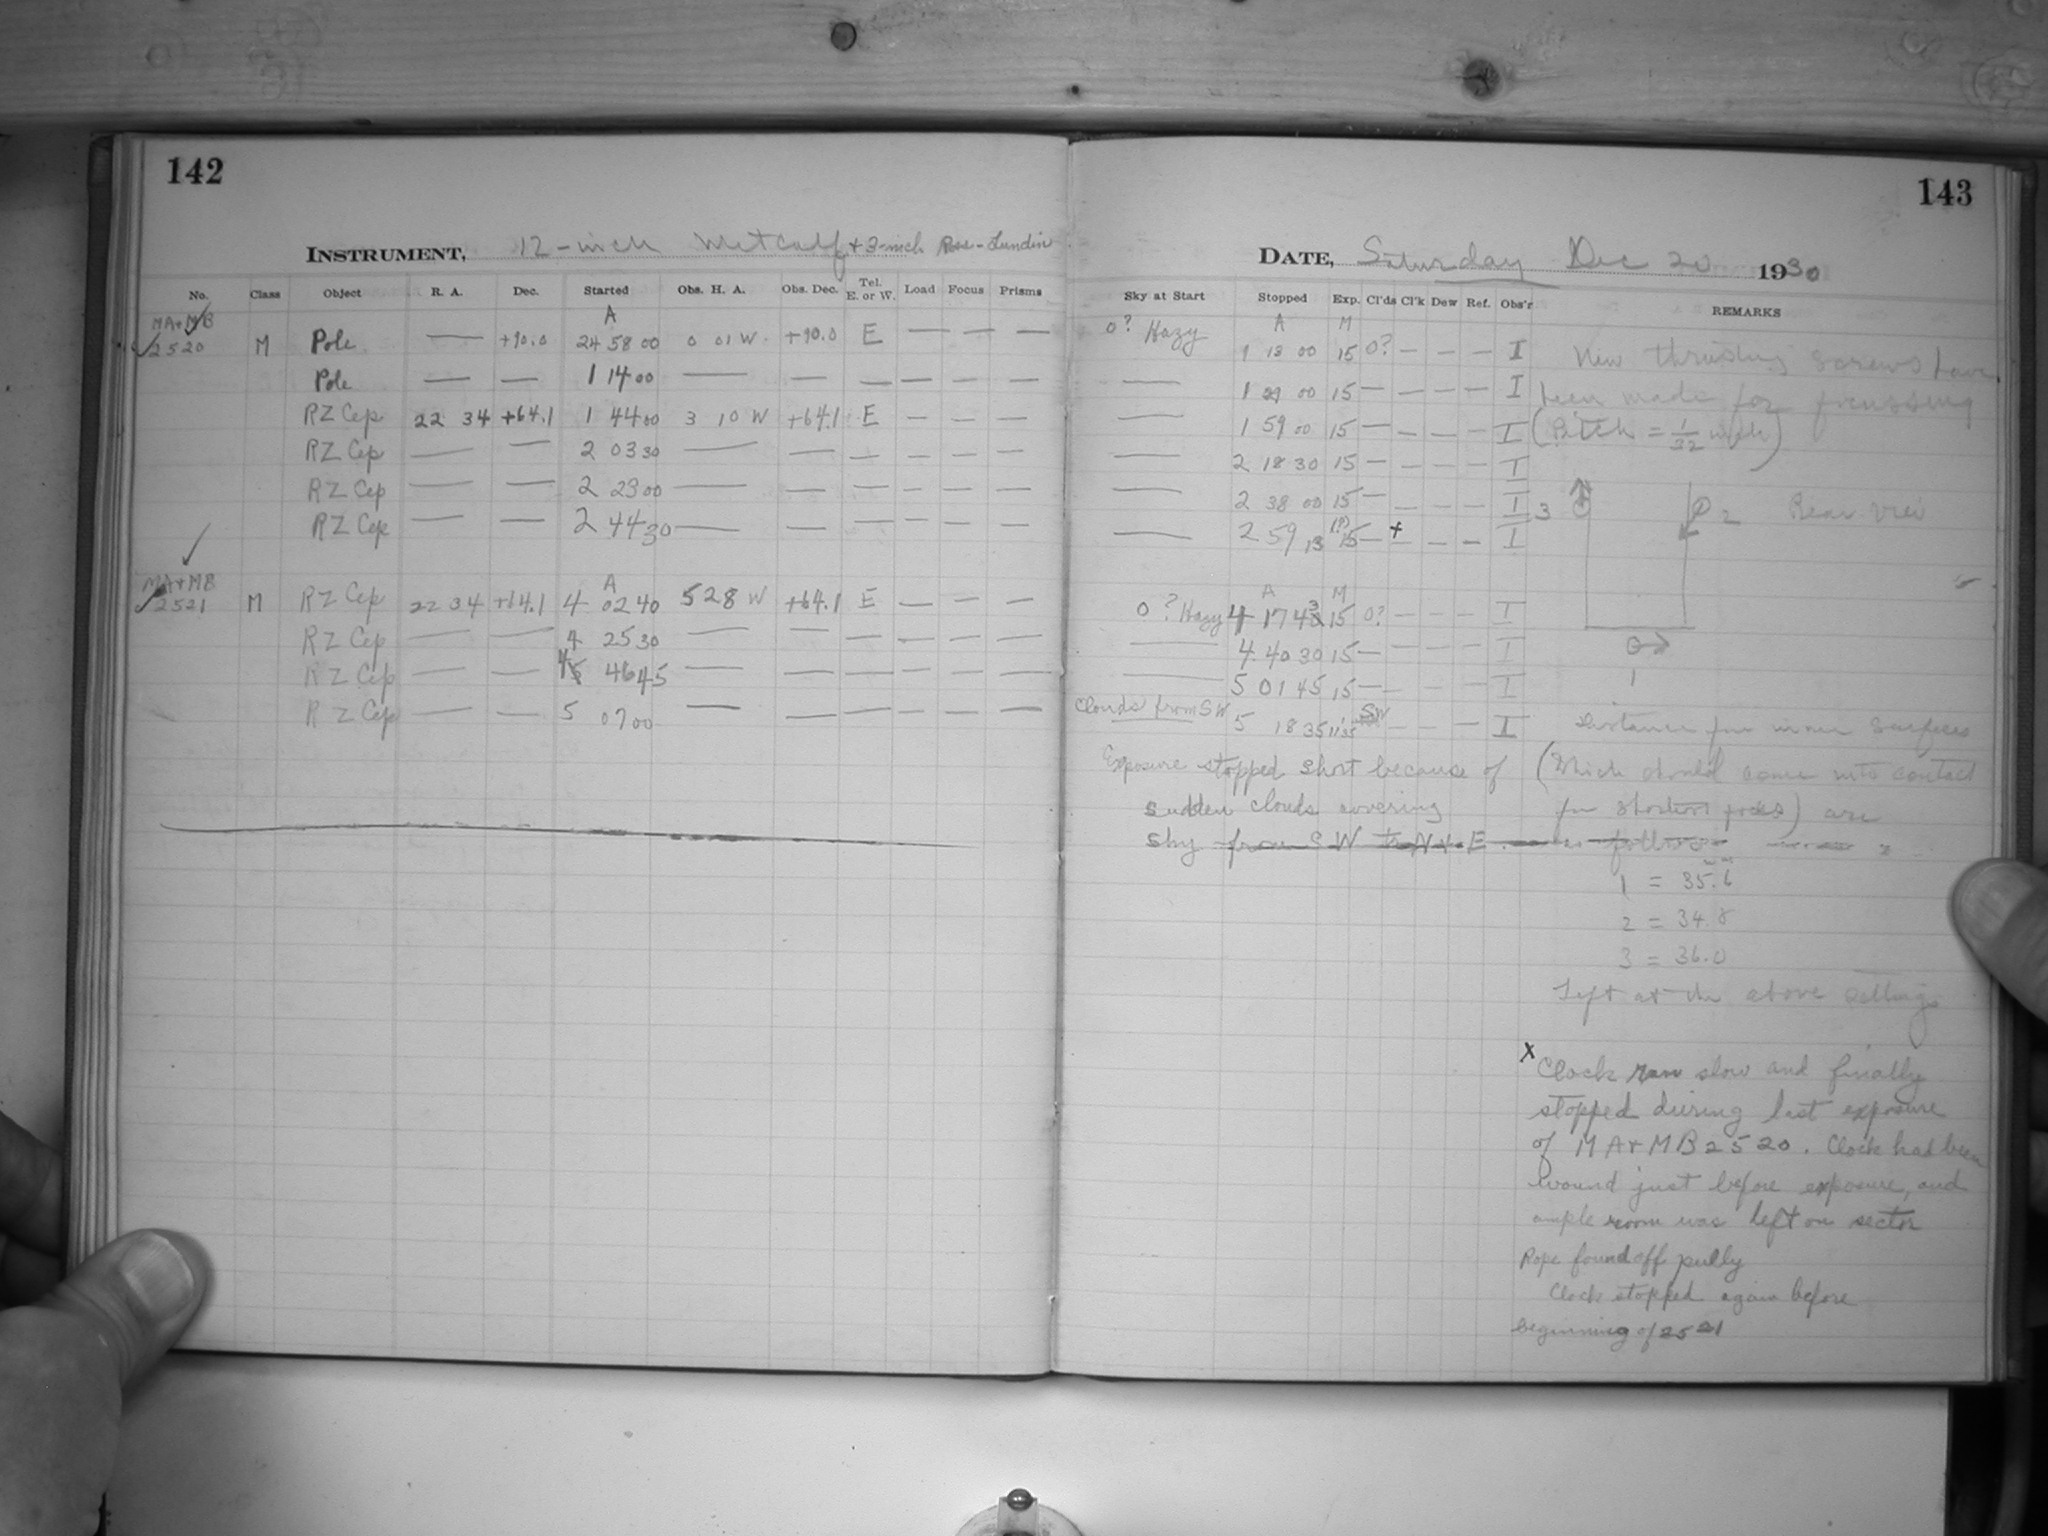 142
INSTRUMENT, 12-inch Metcalf + 3-inch Ross-Lundin
No. Class Object R. A. Dec. Started Obs. H. A. Obs. Dec. Tel. E. or W. Load Focus Prisms
MA+MB A
2520 M Pole — +90.0 24 58 00 0 01 W +90.0 E — — —
Pole — — 1 14 00 — — — — — —
RZ Cep 22 34 +64.1 1 44 00 3 10 W +64.1 E — — —
RZ Cep — — 2 03 30 — — — — — —
RZ Cep — — 2 23 00 — — — — — —
RZ Cep — — 2 44 30 — — — — — —
MA+MB A
2521 M RZ Cep 22 34 +64.1 4 02 40 5 28 W +64.1 E — — —
RZ Cep — — 4 25 30 — — — — — —
RZ Cep — — 4 46 45 — — — — — —
RZ Cep — — 5 07 00 — — — — — —
143
DATE, Saturday Dec 20 1930
Sky at Start Stopped Exp. Cl'ds Cl'k Dew Ref. Obs'r REMARKS
A M
0? Hazy 1 13 00 15 0? — — — I
— 1 29 00 15 — — — — I
— 1 59 00 15 — — — — I
— 2 18 30 15 — — — — I
— 2 38 00 15 — — — — I
— 2 59 13 (?) 15 — + — — I
A M
0? Hazy 4 17 43 15 0? — — — I
— 4 40 30 15 — — — — I
— 5 01 45 15 — — — — I
Clouds from SW 5 18 35 11 35 SW — — — I
Exposure stopped short because of
sudden clouds covering
sky from SW to N + E.
New thrusting screws have
been made for focussing
(Pitch = 1/32 inch)
3 2 Rear view
1
Distance for inner surfaces
(Which should come into contact
for shortest focus) are
as follows
1 = 35.6
2 = 34.8
3 = 36.0
Left at the above settings
X Clock ran slow and finally
stopped during last exposure
of MA+MB2520. Clock had been
wound just before exposure, and
ample room was left on sector
Rope found off pully
Clock stopped again before
beginning of 2521